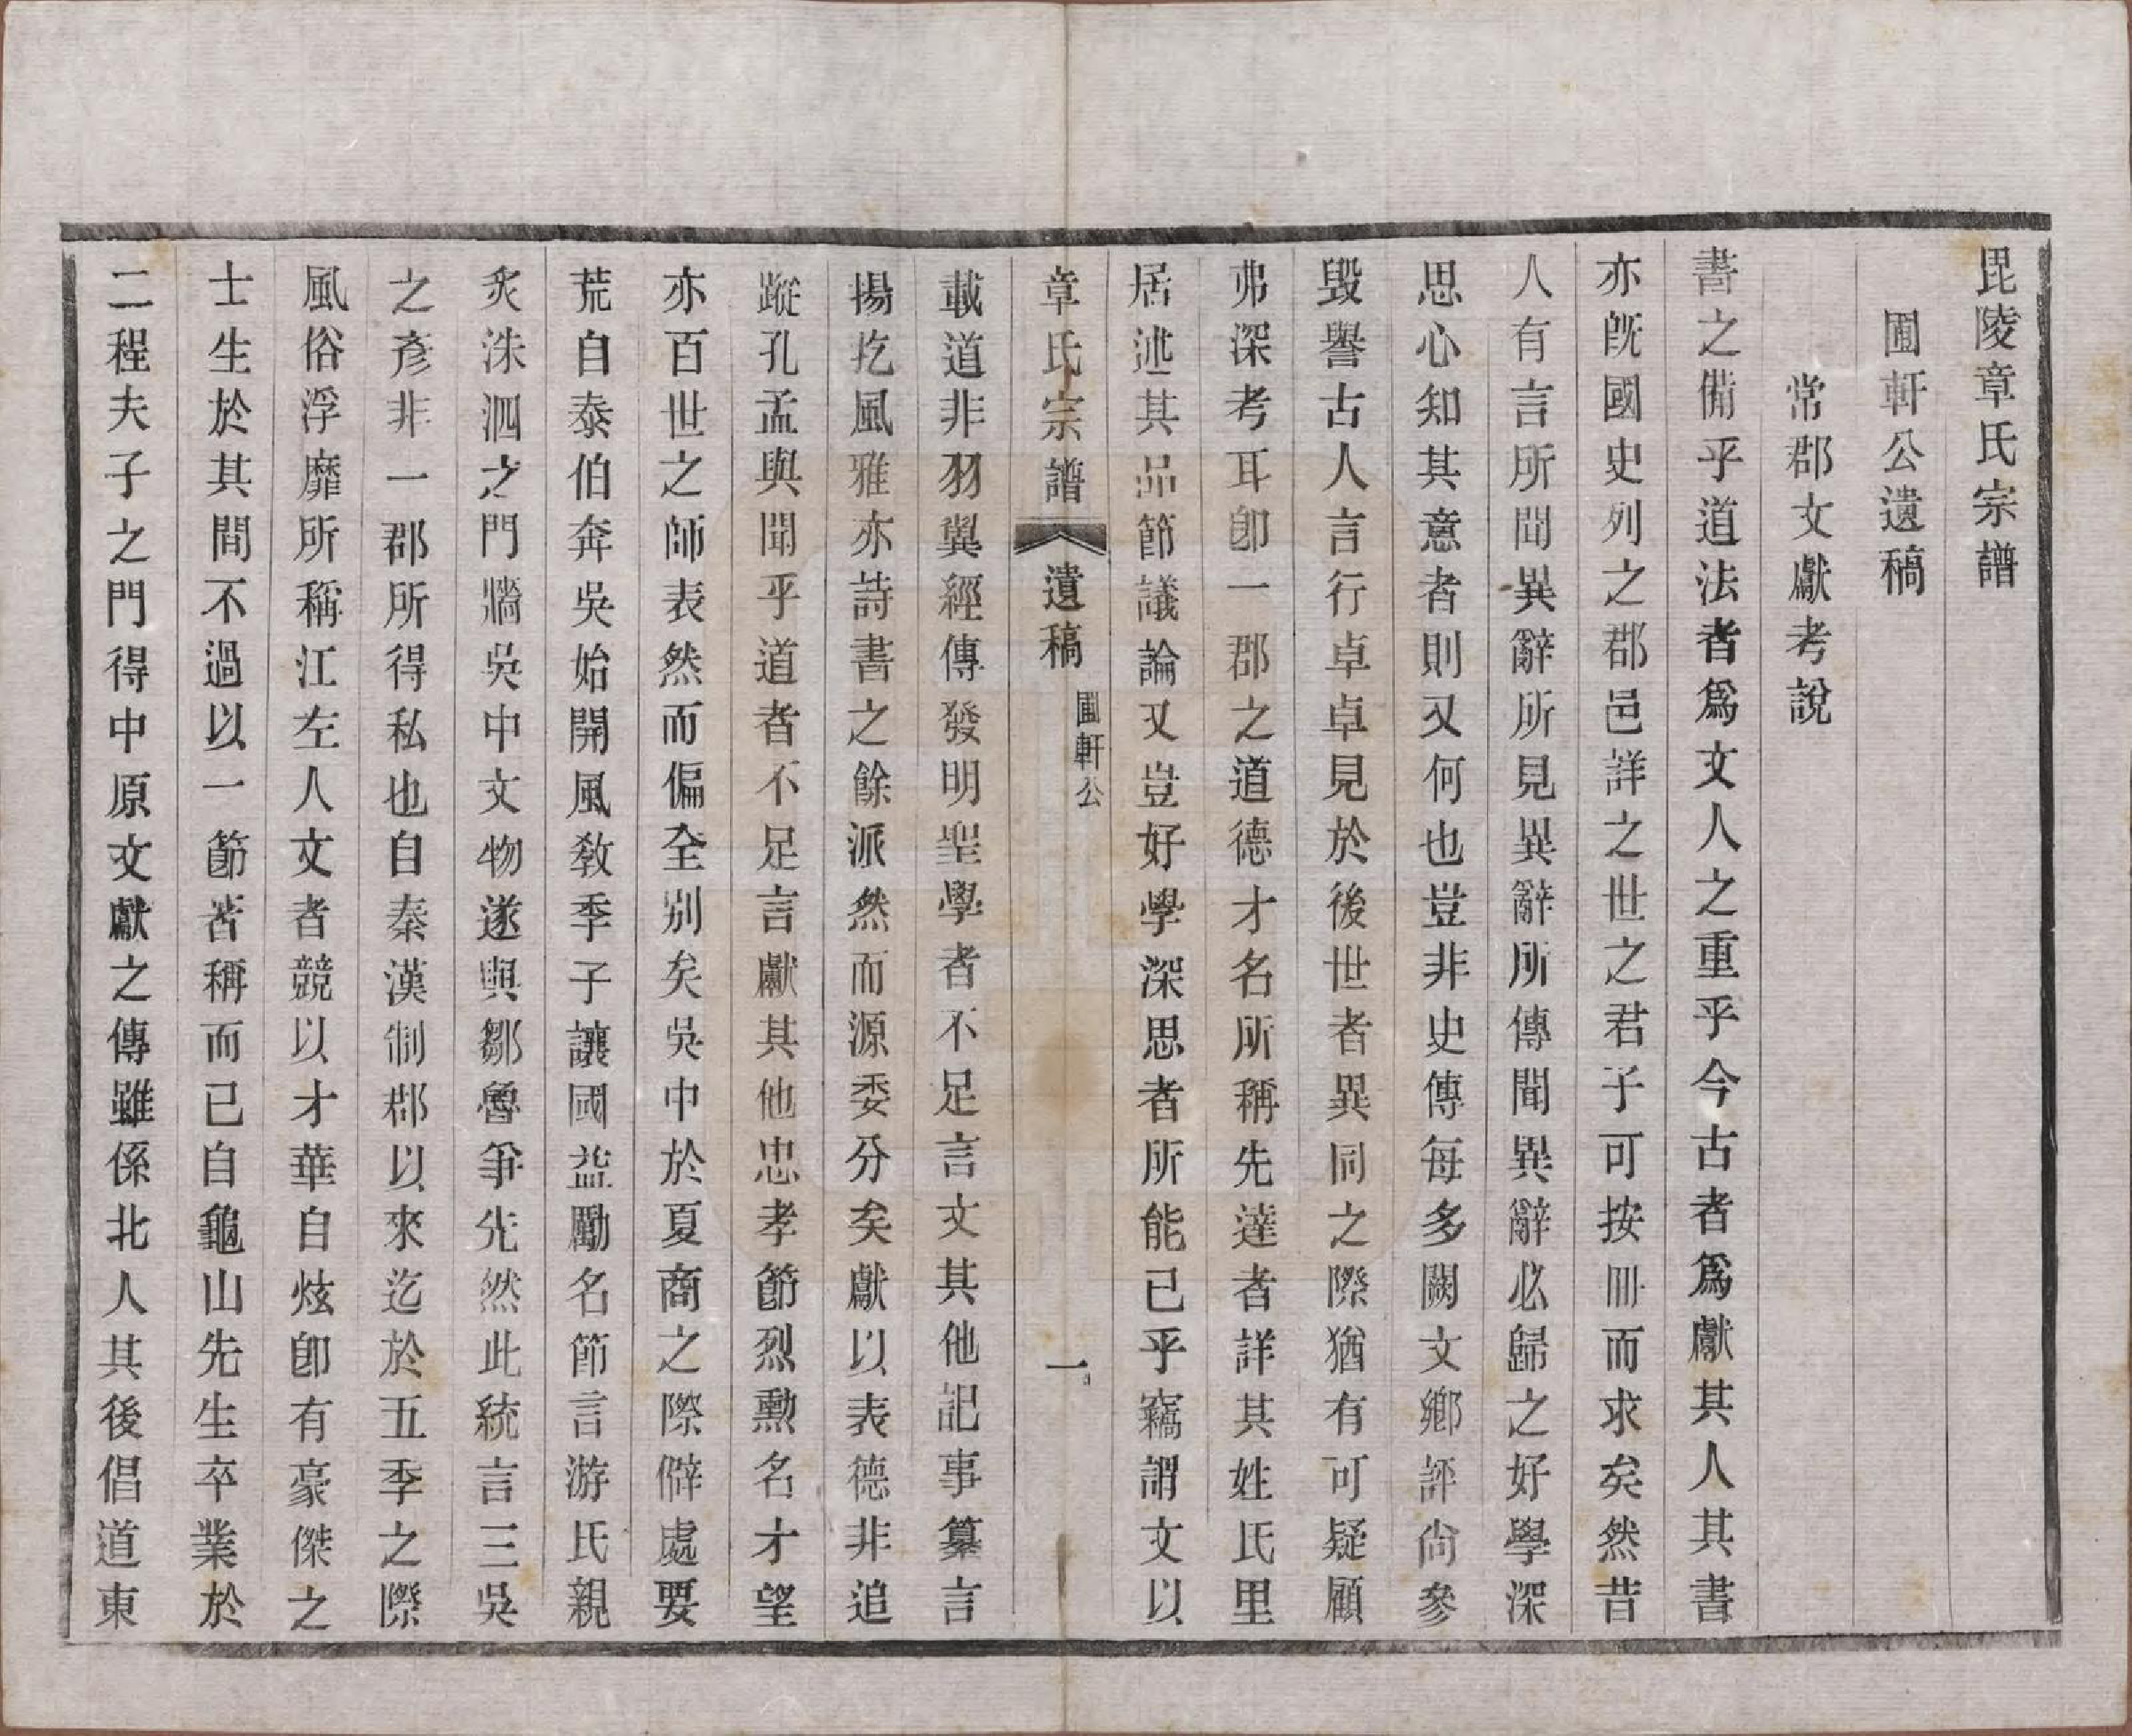 毘陵章氏宗譜
圃軒公遺稿
常郡文獻考說
書之備乎道法者爲文人之重乎今古者爲獻其人其書
亦旣國史列之郡邑詳之世之君子可按冊而求矣然昔
人有言所聞異辭所見異辭所傳聞異辭必歸之好學深
思心知其意者則又何也豈非史傳每多闕文鄉評尙參
毀譽古人言行卓卓見於後世者異同之際猶有可疑顧
弗深考耳卽一郡之道德才名所稱先達者詳其姓氏里
居述其品節議論又豈好學深思者所能已乎竊謂文以
章氏宗譜 遺稿 圃軒公 一
載道非羽翼經傳發明聖學者不足言文其他記事纂言
揚扢風雅亦詩書之餘派然而源委分矣獻以表德非追
蹤孔孟與聞乎道者不足言獻其他忠孝節烈勳名才望
亦百世之師表然而偏全別矣吳中於夏商之際僻處要
荒自泰伯奔吳始開風敎季子讓國益勵名節言游氏親
炙洙泗之門牆吳中文物遂與鄒魯爭先然此統言三吳
之彥非一郡所得私也自秦漢制郡以來迄於五季之際
風俗浮靡所稱江左人文者競以才華自炫卽有豪傑之
士生於其間不過以一節苦稱而已自龜山先生卒業於
二程夫子之門得中原文獻之傳雖係北人其後倡道東